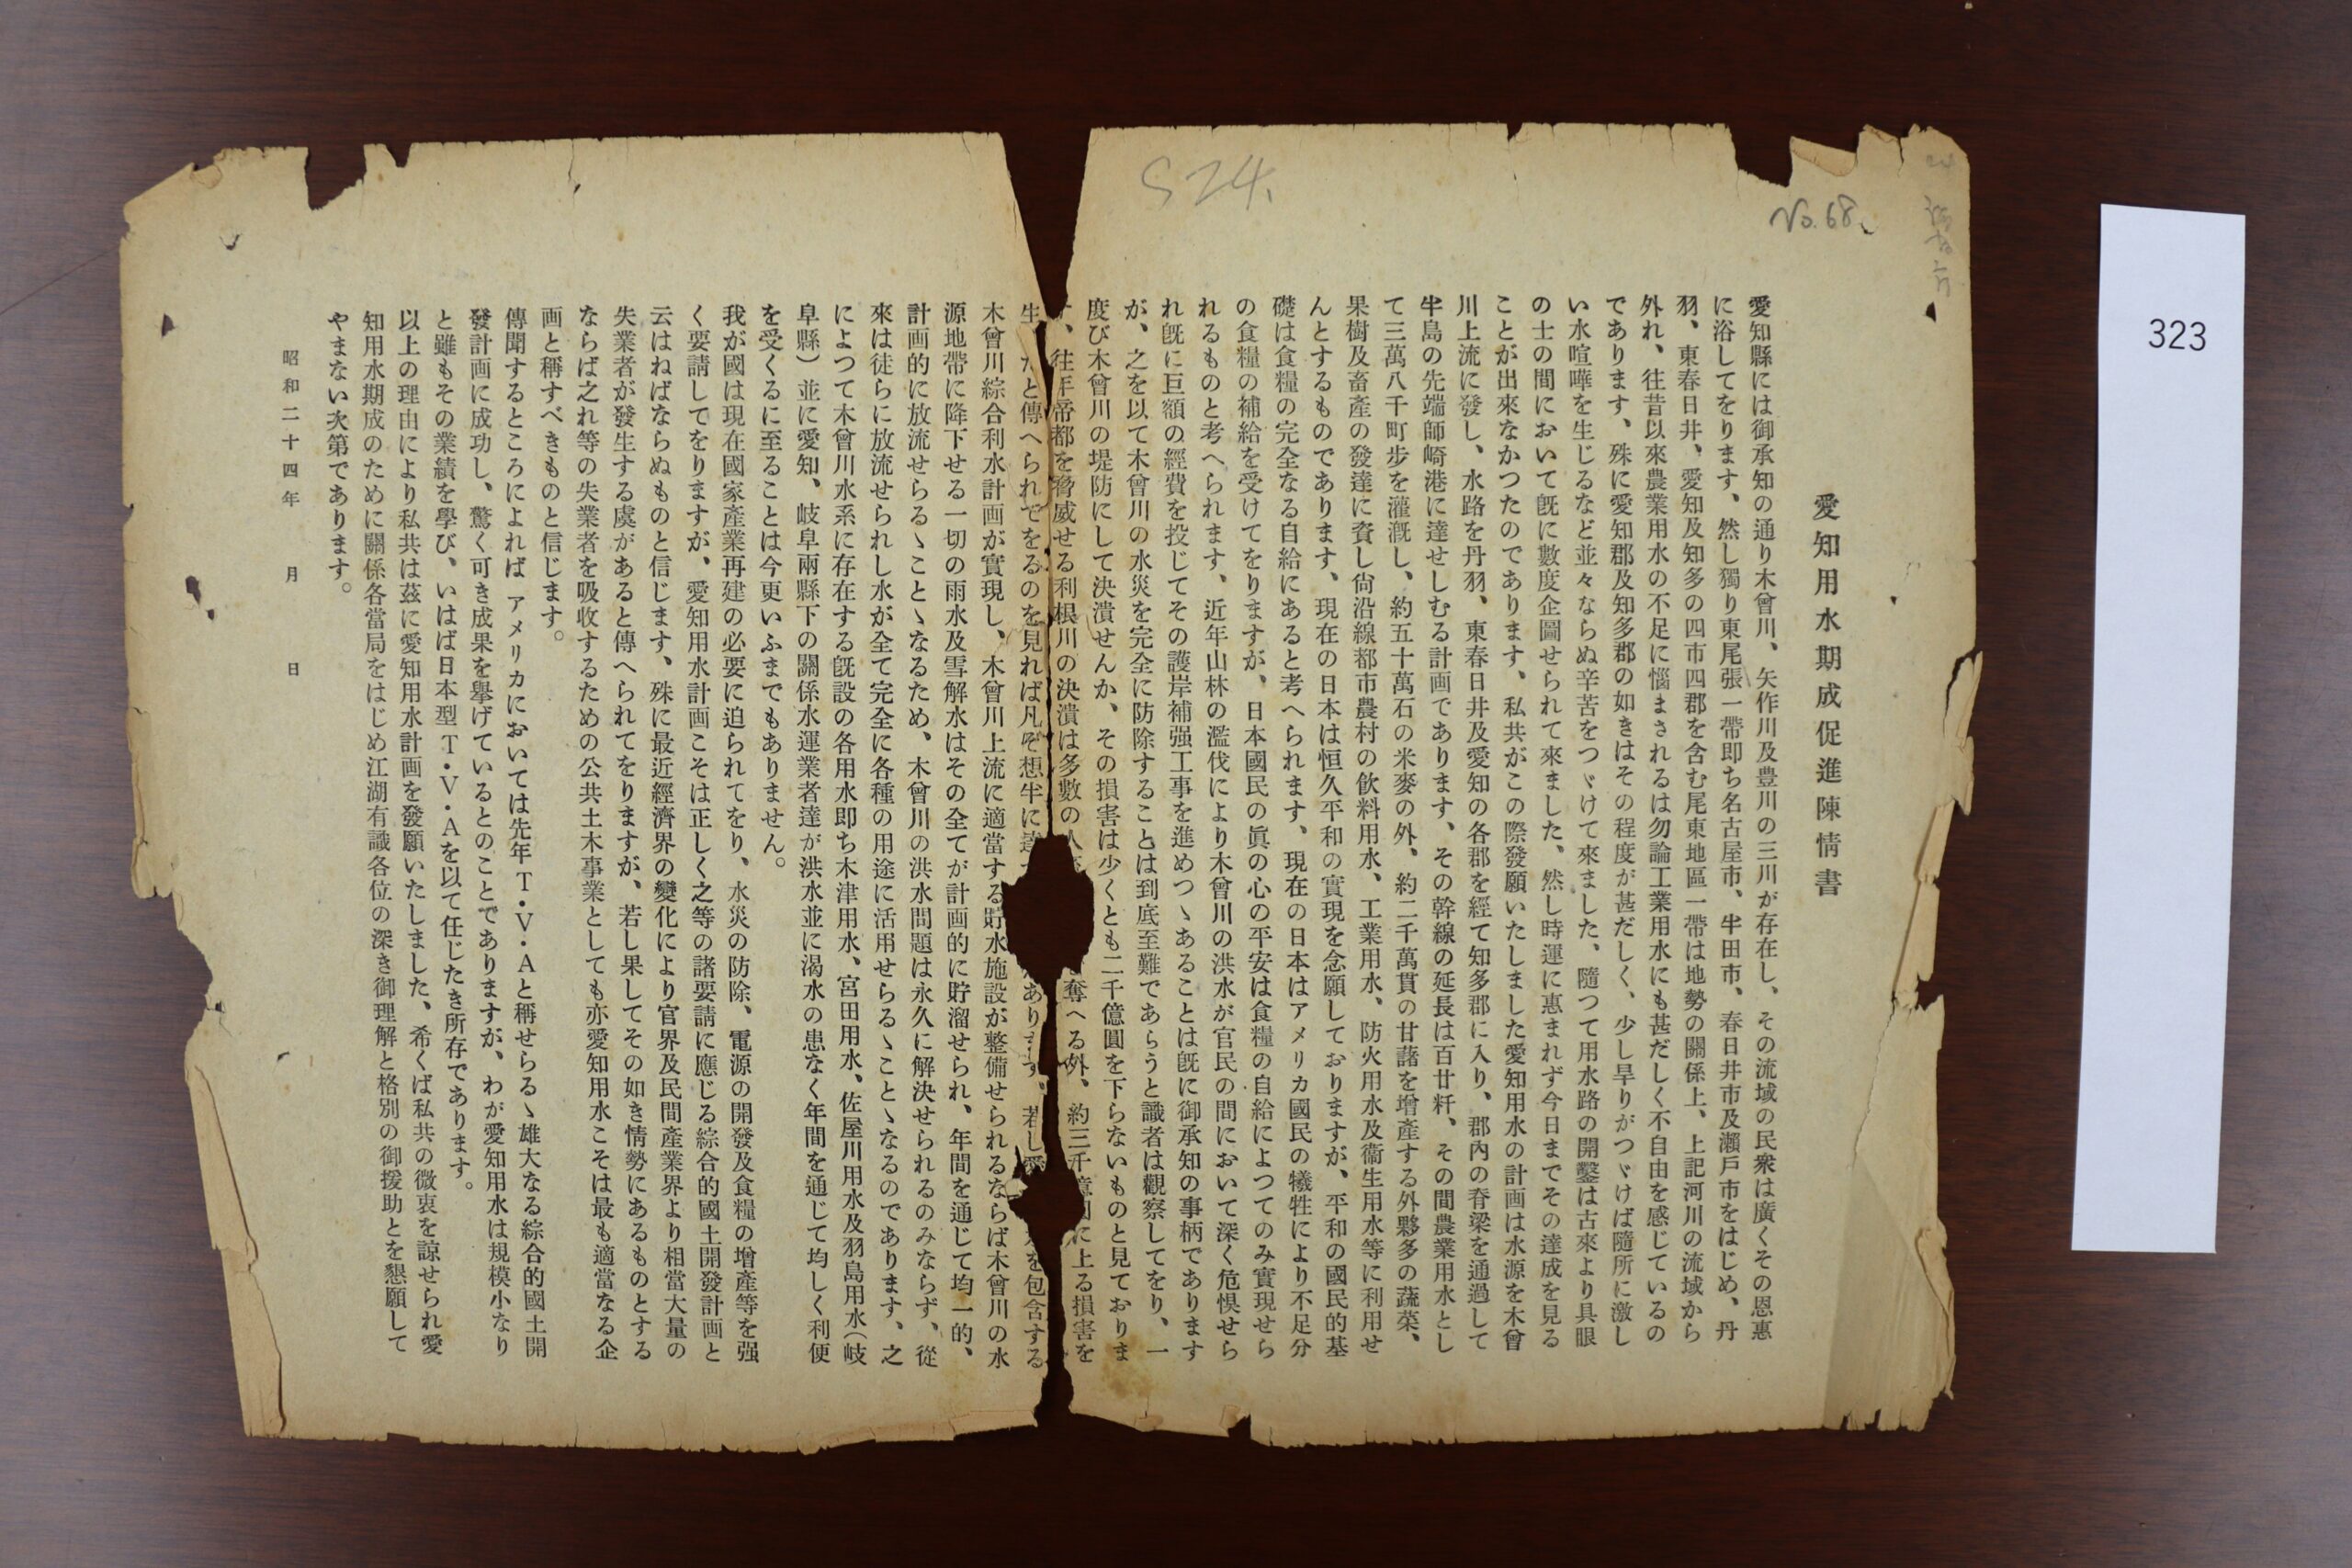 S24.
No.68.
323
愛知用水期成促進陳情書
愛知縣には御承知の通り木曾川、矢作川及豊川の三川が存在し、その流域の民衆は廣くその恩惠
に浴してをります、然し獨り東尾張一帶即ち名古屋市、半田市、春日井市及瀨戶市をはじめ、丹
羽、東春日井、愛知及知多の四市四郡を含む尾東地區一帶は地勢の關係上、上記河川の流域から
外れ、往昔以來農業用水の不足に惱まされるは勿論工業用水にも甚だしく不自由を感じているの
であります、殊に愛知郡及知多郡の如きはその程度が甚だしく、少し旱りがつゞけば隨所に激し
い水喧嘩を生じるなど並々ならぬ辛苦をつゞけて來ました、隨つて用水路の開鑿は古來より具眼
の士の間において旣に數度企圖せられて來ました、然し時運に惠まれず今日までその達成を見る
ことが出來なかつたのであります、私共がこの際發願いたしました愛知用水の計画は水源を木曾
川上流に發し、水路を丹羽、東春日井及愛知の各郡を經て知多郡に入り、郡內の脊梁を通過して
半島の先端師崎港に達せしむる計画であります、その幹線の延長は百廿粁、その間農業用水とし
て三萬八千町步を灌漑し、約五十萬石の米麥の外、約二千萬貫の甘藷を增產する外夥多の蔬菜、
果樹及畜產の發達に資し尙沿線都市農村の飮料用水、工業用水、防火用水及衞生用水等に利用せ
んとするものであります、現在の日本は恒久平和の實現を念願しておりますが、平和の國民的基
礎は食糧の完全なる自給にあると考へられます、現在の日本はアメリカ國民の犧牲により不足分
の食糧の補給を受けてをりますが、日本國民の眞の心の平安は食糧の自給によつてのみ實現せら
れるものと考へられます、近年山林の濫伐により木曾川の洪水が官民の間において深く危惧せら
れ旣に巨額の經費を投じてその護岸補强工事を進めつゝあることは旣に御承知の事柄であります
が、之を以て木曾川の水災を完全に防除することは到底至難であらうと識者は觀察してをり、一
度び木曾川の堤防にして決潰せんか、その損害は少くとも二千億圓を下らないものと見ておりま
、往年帝都を脅威せる利根川の決潰は多數の人 奪へる外、約三千億圓に上る損害を
生 たと傳へられてをるのを見れば凡そ想半に あります、若し を包含する
木曾川綜合利水計画が實現し、木曾川上流に適當する貯水施設が整備せられるならば木曾川の水
源地帶に降下せる一切の雨水及雪解水はその全てが計画的に貯溜せられ、年間を通じて均一的、
計画的に放流せらるゝことゝなるため、木曾川の洪水問題は永久に解決せられるのみならず、從
來は徒らに放流せられし水が全て完全に各種の用途に活用せらるゝことゝなるのであります、之
によつて木曾川水系に存在する旣設の各用水即ち木津用水、宮田用水、佐屋川用水及羽島用水（岐
阜縣）並に愛知、岐阜兩縣下の關係水運業者達が洪水並に渴水の患なく年間を通じて均しく利便
を受くるに至ることは今更いふまでもありません。
我が國は現在國家產業再建の必要に迫られてをり、水災の防除、電源の開發及食糧の增產等を强
く要請してをりますが、愛知用水計画こそは正しく之等の諸要請に應じる綜合的國土開發計画と
云はねばならぬものと信じます、殊に最近經濟界の變化により官界及民間產業界より相當大量の
失業者が發生する虞があると傳へられてをりますが、若し果してその如き情勢にあるものとする
ならば之れ等の失業者を吸收するための公共土木事業としても亦愛知用水こそは最も適當なる企
画と稱すべきものと信じます。
傳聞するところによれば アメリカにおいては先年T・V・Aと稱せらるゝ雄大なる綜合的國土開
發計画に成功し、驚く可き成果を擧げているとのことでありますが、わが愛知用水は規模小なり
と雖もその業績を學び、いはば日本型T・V・Aを以て任じたき所存であります。
以上の理由により私共は茲に愛知用水計画を發願いたしました、希くば私共の微衷を諒せられ愛
知用水期成のために關係各當局をはじめ江湖有識各位の深き御理解と格別の御援助とを懇願して
やまない次第であります。
昭和二十四年　月　日